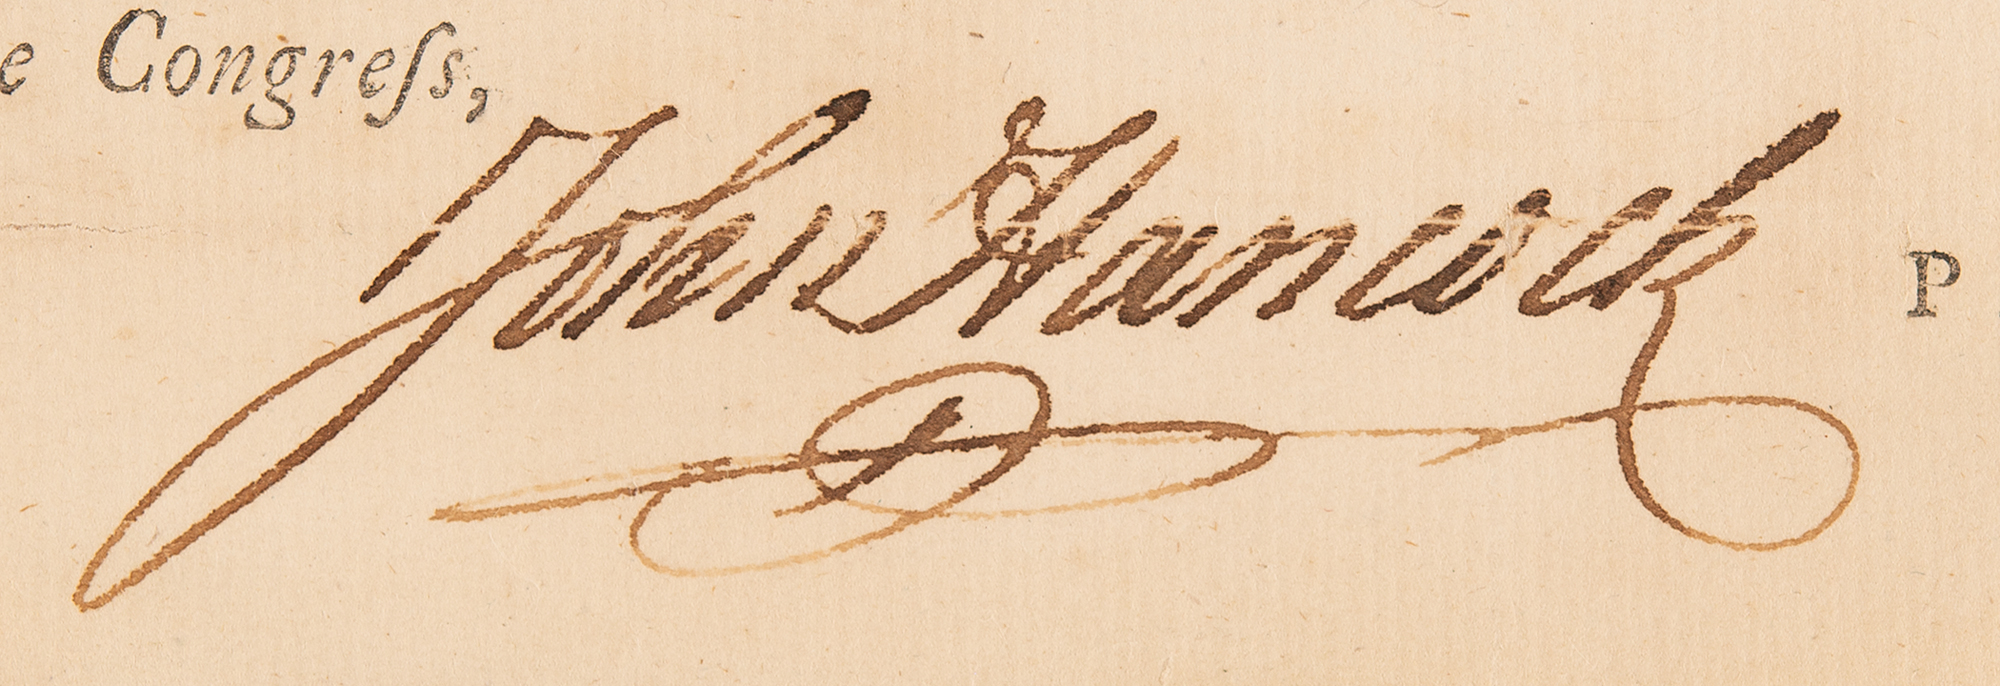 e Congreſs,
John Hancock
P